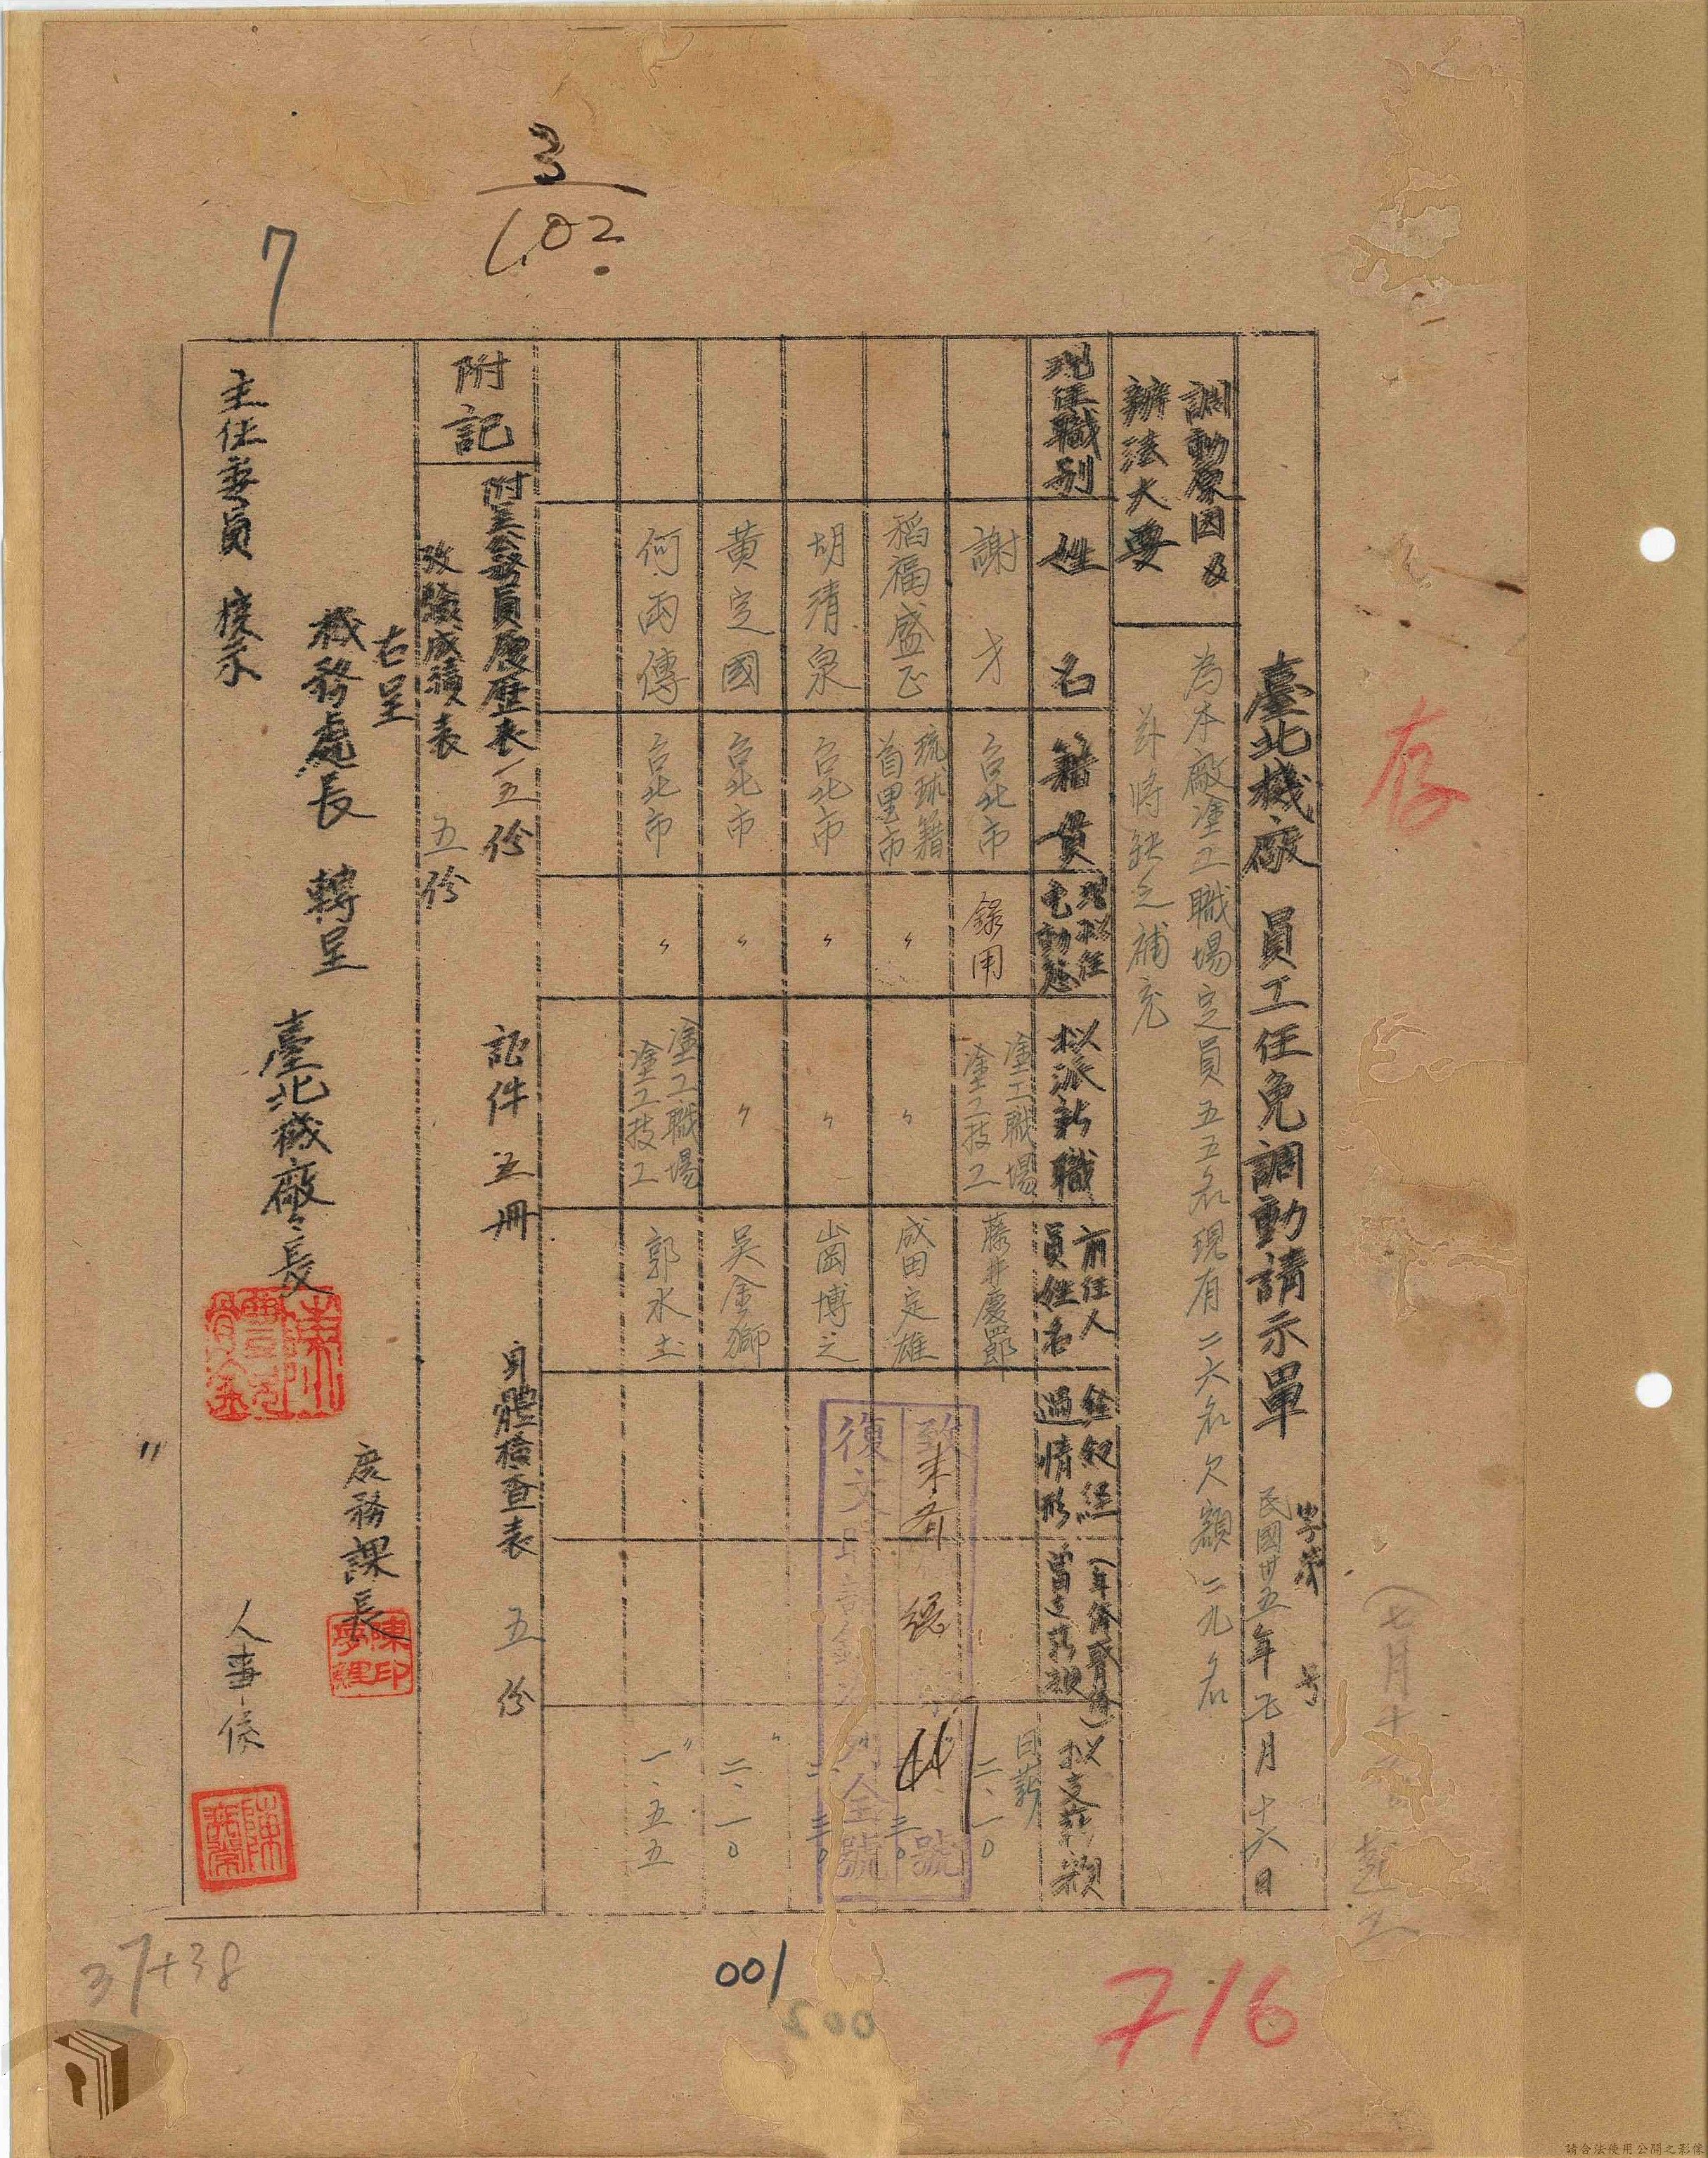 3
102
7
存
臺北機廠 員工任免調動請示單
字第 号
民國卅五年七月十六日
調動原因及
辦法大要
為本廠塗工職場定員五五名現有二六名欠額二九名
將缺之補充
現任職別
姓名
籍貫
拟派新職
前任人
員姓名
過情形
拟支薪額
謝才
台北市
錄用
塗工職場
塗工技工
藤井慶郎
日薪
二、一〇
稻福盛正
琉球籍
首里市
〃
〃
成田定雄
三〇
胡清泉
台北市
〃
〃
崗博之
二、三〇
黃定國
台北市
〃
〃
吳金獅
二、一〇
何雨傳
台北市
〃
塗工職場
塗工技工
郭水土
一、五五
附記
員履歷表五份
証件五冊
身體檢查表 五份
攷驗成績表 五份
右呈
機務處長 轉呈
主任委員 核示
臺北機廠廠長
庶務課長
人事係
復文
號
號
37+38
001
002
716
請合法使用公開之影像